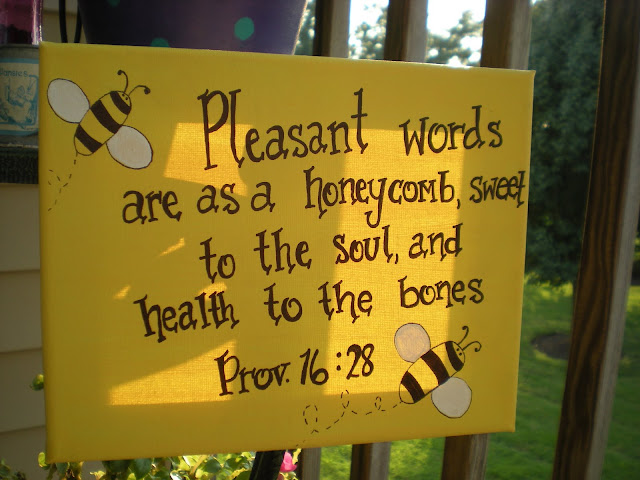 Pleasant words
are as a honeycomb, sweet
to the soul, and
health to the bones
Prov. 16:28